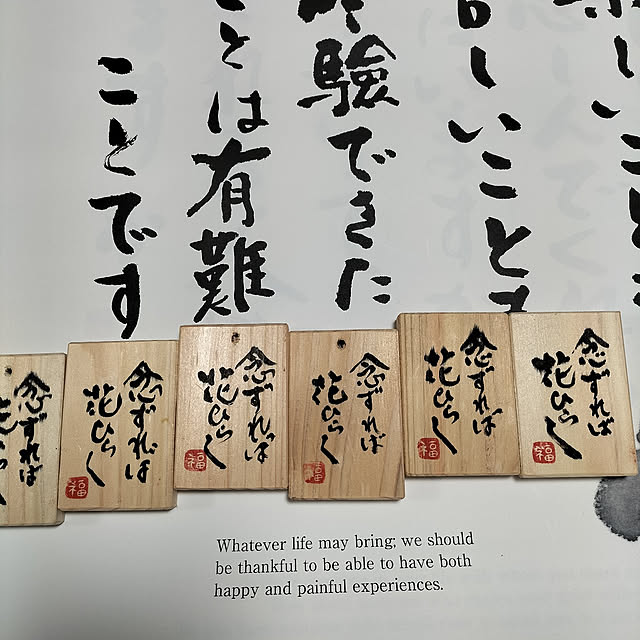 しいこと
しいこと
験できた
とは有難
ことです
念ずれば
花ひらく
福
念ずれば
花ひらく
福
念ずれば
花ひらく
福
念ずれば
花ひらく
福
念ずれば
花ひらく
福
念ずれば
Whatever life may bring, we should
be thankful to be able to have both
happy and painful experiences.